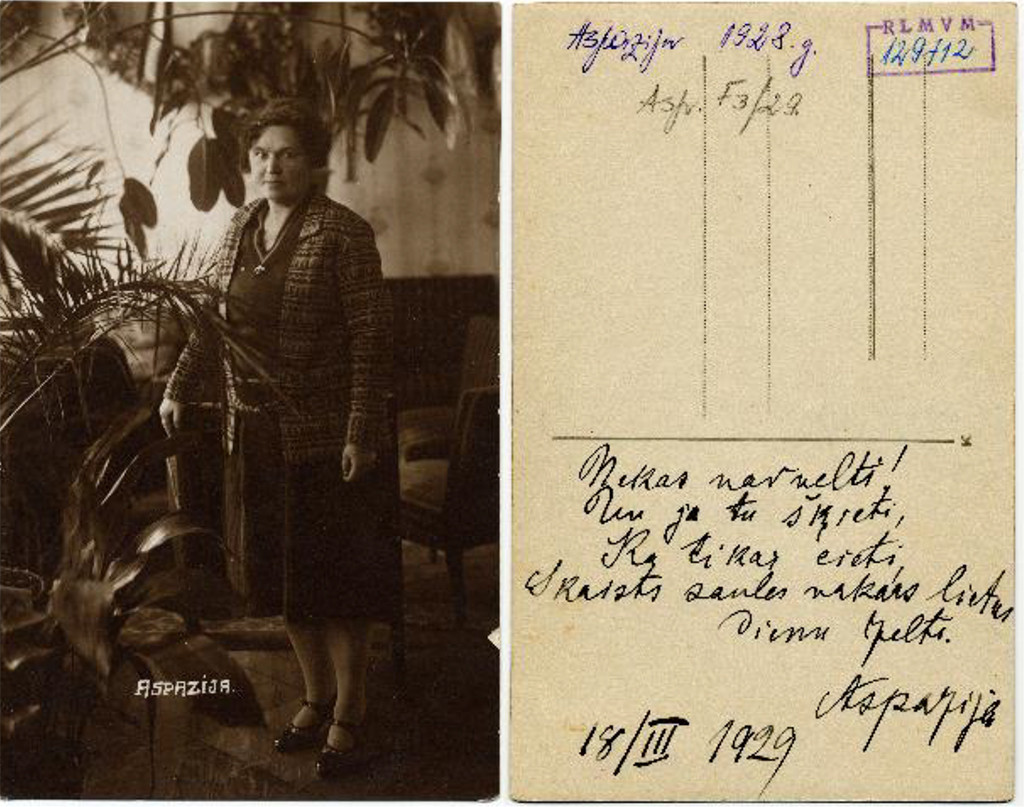 ASPAZIJA.
Aspazija 1928. g.
RLMVM
129712
Asp. F3/29.
Nekas nav velti!
Un ja tu šķieti,
Ka tikai cieti,
Skaists saules vakars lietus
dienu pelta.
Aspazija
18/III 1929
K